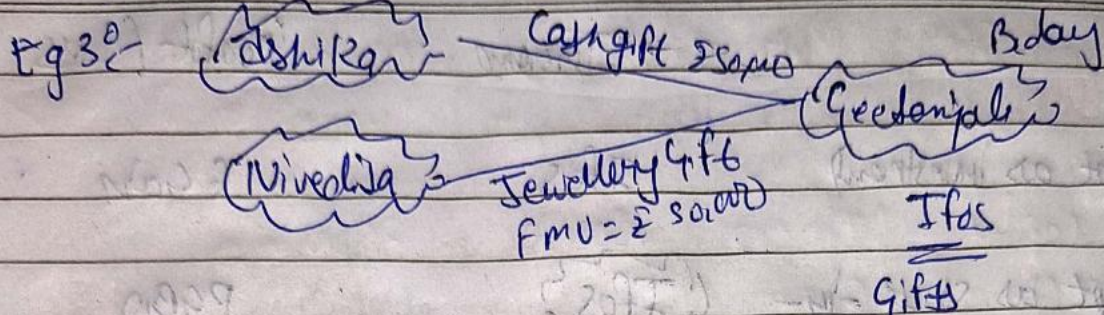 Eg 3:- Ishika Cash gift ₹50,000 B.day
Geetanjali
Nivedita Jewellery Gift
FMV = ₹ 50,000
Ifos
Gifts